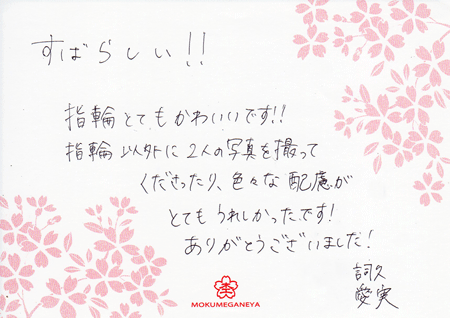 すばらしい!!
指輪とてもかわいいです!!
指輪以外に2人の写真を撮って
くださったり、色々な配慮が
とてもうれしかったです!
ありがとうございました!
詞久
愛実
MOKUMEGANEYA